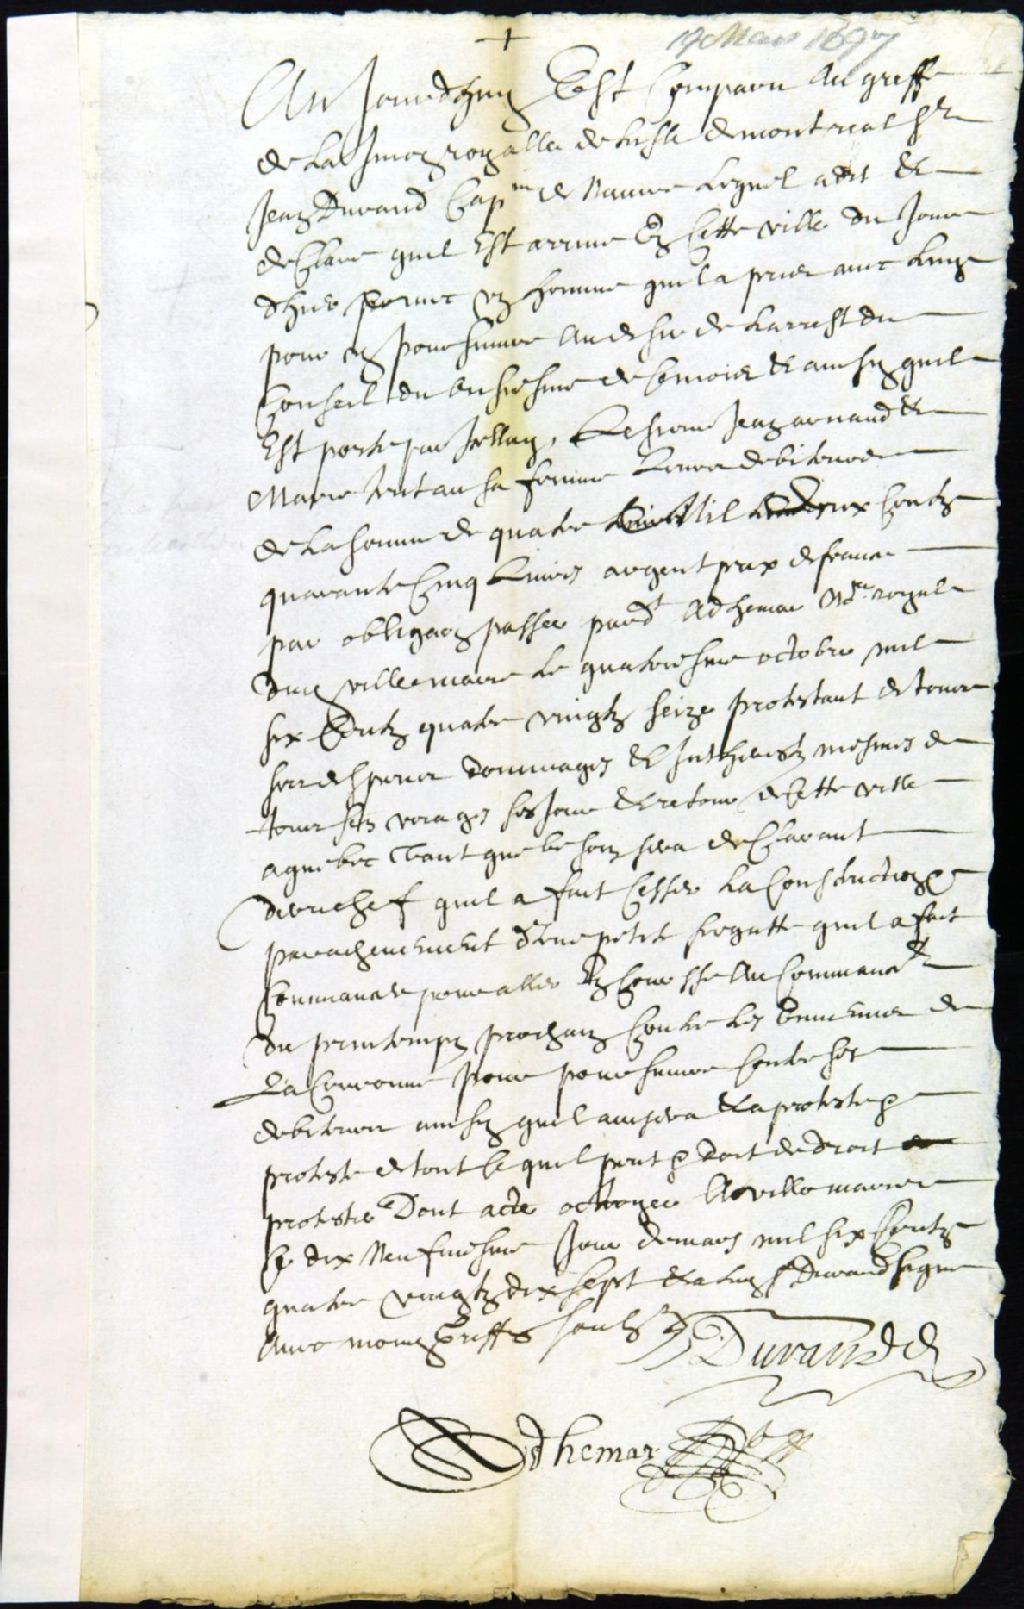 19 Mars 1697
Au Jourdhuy Est Comparu Au greffe
de La Jurisd royalle de Lisle de montreal sr
Jean Durand Capne de Navire Lequel a dit et
declare quil Est arrivé En Cette ville du Jour
dhier avec un homme quil a prie avec Luy
pour En poursuivre de Larrest du
Conseil du de Ce mois et ainsy quil
Est porte par Icelluy, Le sieur Jean arnaud et
Marie sa femme Leurs debiteurs
de La somme de quatre mil deux Centz
quarante Cinq Livres argent prix de france
par obligaon passée pardt Adhemar Nore royal
dud villemarie Le quatriesme octobre mil
six Centz quatre vingtz seize protestant de tous
ses despens dommages et Interestz mesmes de
tous ses voiages sesjour et retour de Cette ville
a quebec tant que besoin sera declarant
derechef quil a fait Cesser La Construction et
parachevement d'une petite fregatte quil a fait
Commancer pour aller En Course Au Commancemt
du printemps prochain Contre Les Ennemis de
La Couronne pour poursuivre Contre ses
debiteurs ainsy quil avisera Et a proteste et
proteste de tout Ce quil peut et doit de droit
protester Dont acte octroyee Aud villemarie
Ce dix Neufviesme Jour de mars mil six Centz
quatre vingtz dix sept Et a led sr Durand signe
Avec moy Greffr soubzne
Durand
Adhemar